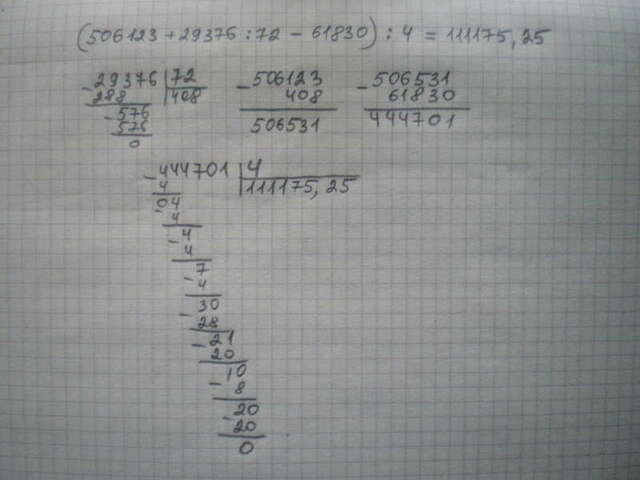 (506123 + 29376 : 72 - 61830) : 4 = 111175,25
- 29376 | 72
288 | 408
- 576
576
0
- 506123
408
506531
- 506531
61830
444701
- 444701 | 4
4 | 111175,25
- 04
4
- 4
4
7
- 4
30
- 28
- 21
20
10
- 8
- 20
20
0